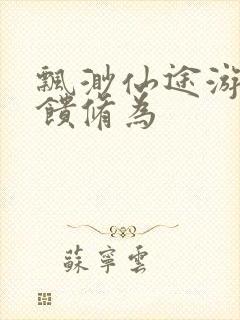 飄渺仙途游
饋脩為
蘇寧雲